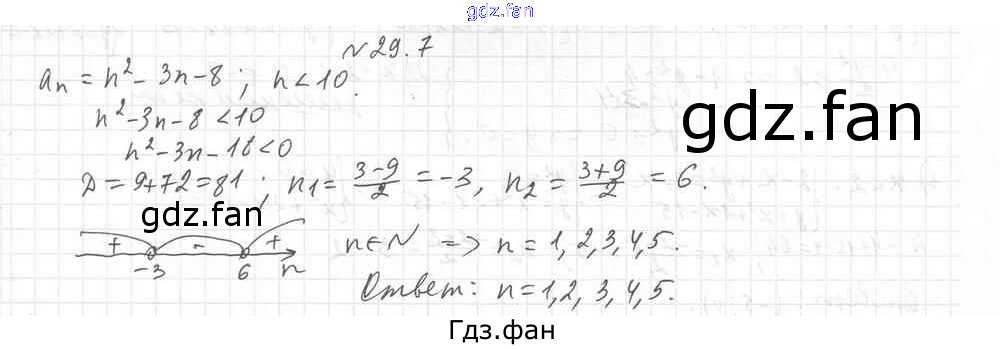 gdz.fan
№29.7
aₙ = n² - 3n - 8 ; n < 10.
n² - 3n - 8 < 10
n² - 3n - 18 < 0
gdz.fan
D = 9 + 72 = 81 ; n₁ = (3-9)/2 = -3, n₂ = (3+9)/2 = 6.
gdz.fan
+ - +
-3 6 n
n∈N => n = 1, 2, 3, 4, 5.
Ответ: n = 1, 2, 3, 4, 5.
Гдз.фан